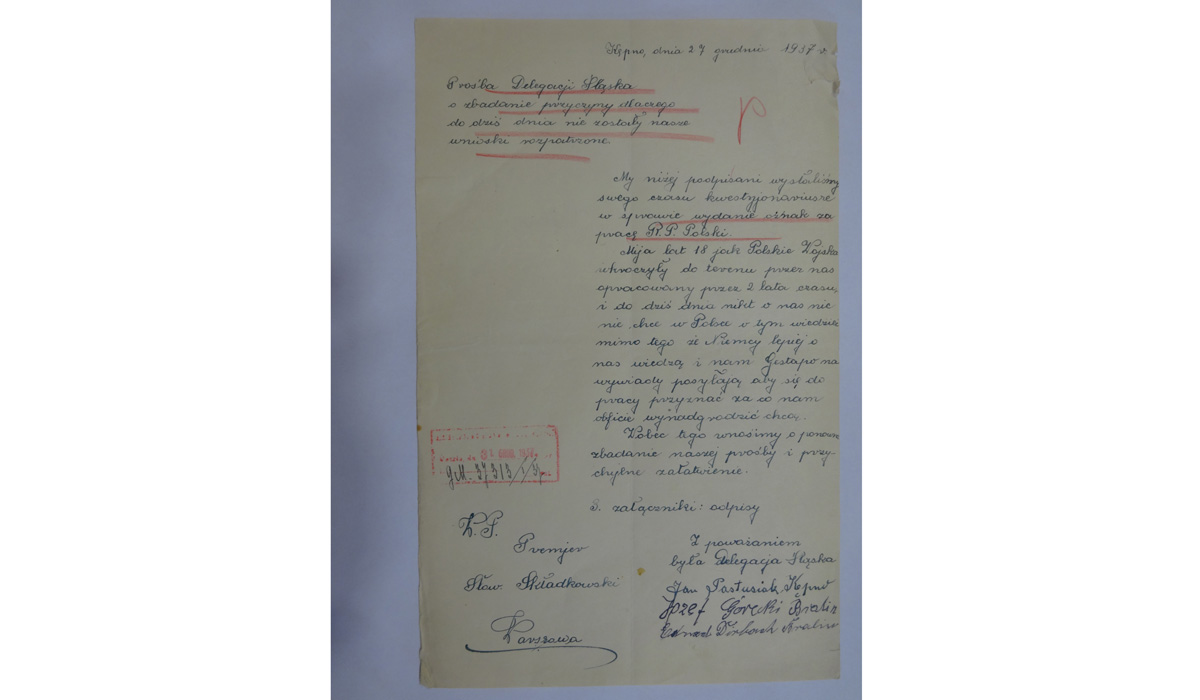 Kępno, dnia 27 grudnia 1937 r.
Prośba Delegacji Śląska
o zbadanie przyczyny dlaczego
do dziś dnia nie zostały nasze
wnioski rozpatrzone.
My niżej podpisani wysłaliśmy
swego czasu kwestyjonariusze
w sprawie wydanie oznak za
pracę R. P. Polski.
Mija lat 18 jak Polskie Wojska
wkroczyły do terenu przez nas
opracowany przez 2 lata czasu,
i do dziś dnia nikt o nas nic
nie chce w Polsce o tym wiedzieć
mimo tego że Niemcy lepiej o
nas wiedzą i nam Gistapo na
wywiady posyłają aby się do
pracy przyznać za co nam
obficie wynadgrodzić chcą.
Wobec tego wnosimy o ponown
zbadanie naszej prośby i przy-
chylne załatwienie.
3. załączniki: odpisy
Z poważaniem
była Delegacja Śląska
Jan Pastusiak, Kępno
Józef Górecki Bralin
Bralin
Premjer
Sław. Składkowski
Warszawa